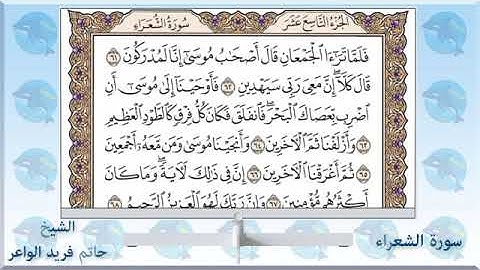 سُورَةُ الشُّعَرَاءِ
الجُزْءُ التَّاسِعَ عَشَرَ
فَلَمَّا تَرَٰٓءَا ٱلْجَمْعَانِ قَالَ أَصْحَٰبُ مُوسَىٰٓ إِنَّا لَمُدْرَكُونَ ٦١
قَالَ كَلَّآ إِنَّ مَعِىَ رَبِّى سَيَهْدِينِ ٦٢ فَأَوْحَيْنَآ إِلَىٰ مُوسَىٰٓ أَنِ
ٱضْرِب بِّعَصَاكَ ٱلْبَحْرَ فَٱنفَلَقَ فَكَانَ كُلُّ فِرْقٍ كَٱلطَّوْدِ ٱلْعَظِيمِ
٦٣ وَأَزْلَفْنَا ثَمَّ ٱلْءَاخَرِينَ ٦٤ وَأَنجَيْنَا مُوسَىٰ وَمَن مَّعَهُۥٓ أَجْمَعِينَ
٦٥ ثُمَّ أَغْرَقْنَا ٱلْءَاخَرِينَ ٦٦ إِنَّ فِى ذَٰلِكَ لَءَايَةً وَمَا كَانَ
أَكْثَرُهُم مُّؤْمِنِينَ ٦٧ وَإِنَّ رَبَّكَ لَهُوَ ٱلْعَزِيزُ ٱلرَّحِيمُ ٦٨
سورة الشعراء
الشيخ
حاتم فريد الواعر